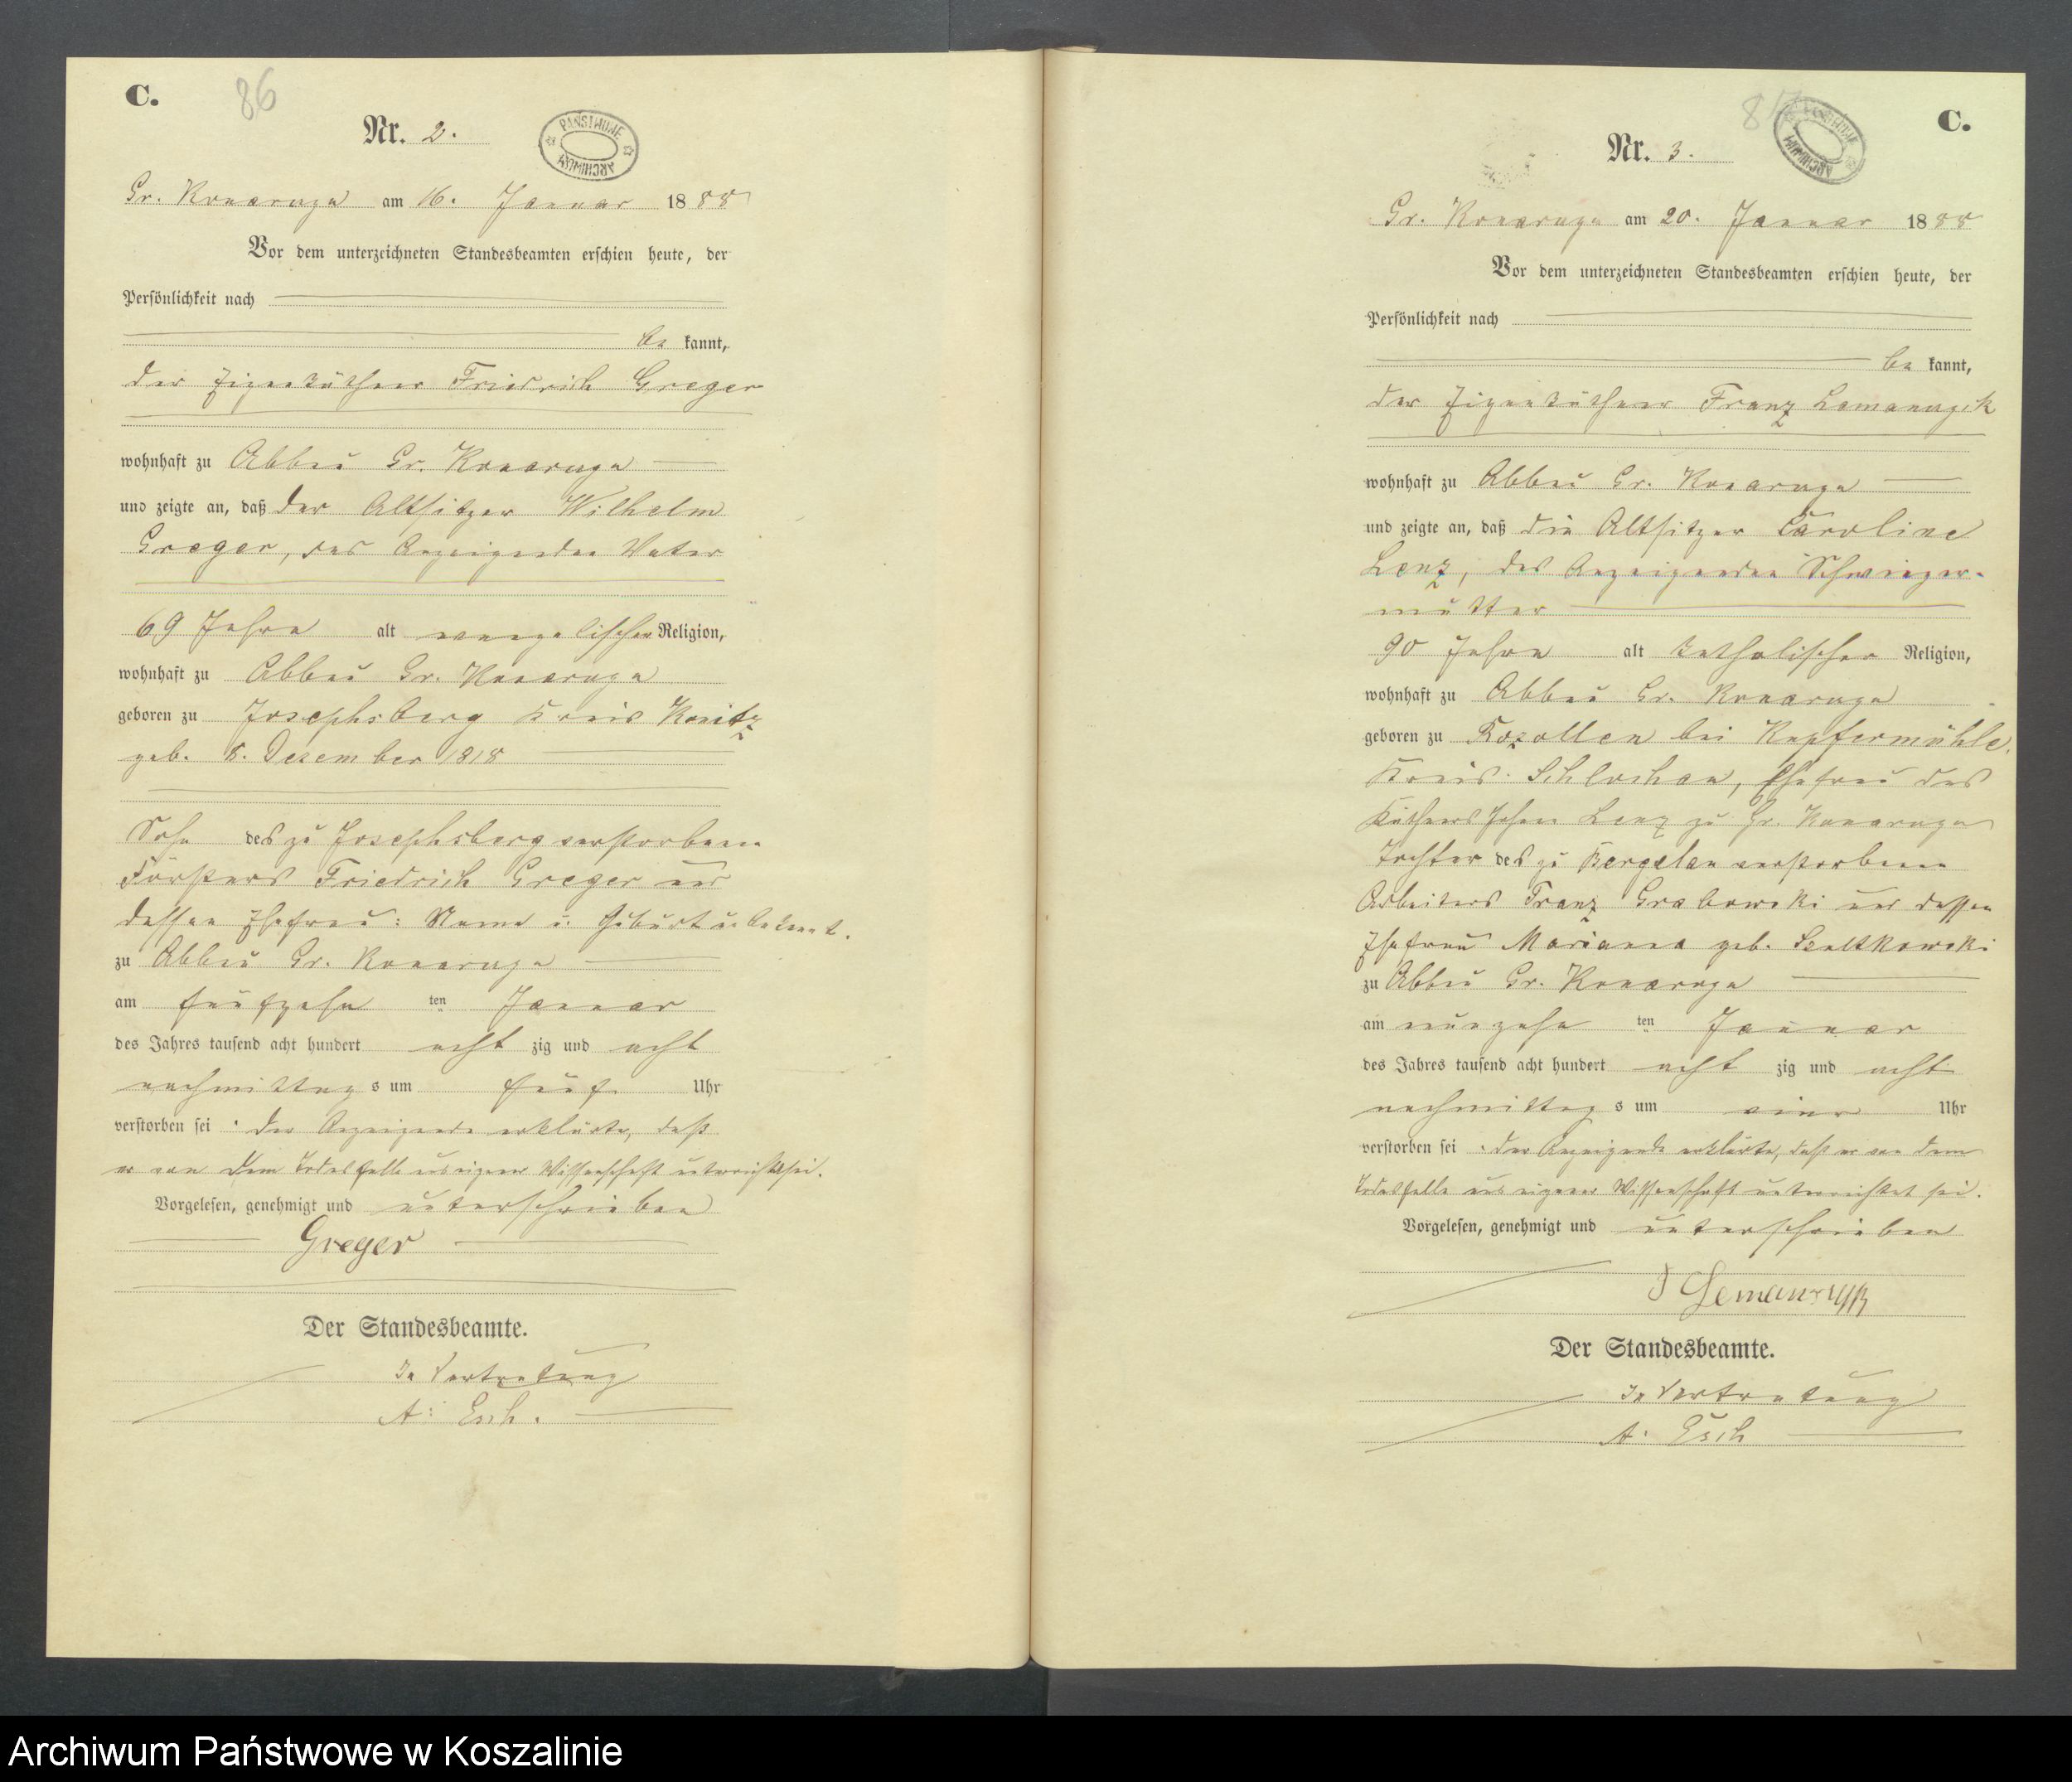 C.
86
Nr. 2.
PAŃSTWOWE ARCHIWUM
Gr. Konarczyn am 16. Januar 1888
Vor dem unterzeichneten Standesbeamten erschien heute, der
Persönlichkeit nach
be kannt,
der Eigenkäthner Friedrich Greger
wohnhaft zu Abbau Gr. Konarczyn
und zeigte an, daß der Altsitzer Wilhelm
Greger, des Anzeigenden Vater
69 Jahre alt evangelischer Religion,
wohnhaft zu Abbau Gr. Konarczyn
geboren zu Josephsberg Kreis Konitz
geb. 8. Dezember 1818
Sohn des zu Josephsberg verstorbenen
Försters Friedrich Greger und
dessen Ehefrau: Name u. Geburt unbekannt.
zu Abbau Gr. Konarczyn
am fünfzehn ten Januar
des Jahres tausend acht hundert acht zig und acht
nachmittag s um fünf Uhr
verstorben sei . Der Anzeigende erklärte, daß
er von dem Todesfalle aus eigener Wissenschaft unterrichtet sei.
Vorgelesen, genehmigt und unterschrieben
Greger
Der Standesbeamte.
In Vertretung
A. Esch.
C.
87
Nr. 3.
PAŃSTWOWE ARCHIWUM
Gr. Konarczyn am 20. Januar 1888
Vor dem unterzeichneten Standesbeamten erschien heute, der
Persönlichkeit nach
be kannt,
der Eigenkäthner Franz Lamanczik
wohnhaft zu Abbau Gr. Konarczyn
und zeigte an, daß die Altsitzer Caroline
Lenz, des Anzeigenden Schwieger-
mutter
90 Jahre alt katholischer Religion,
wohnhaft zu Abbau Gr. Konarczyn
geboren zu Kozollen bei Kupfermühle,
Kreis Schlochau, Ehefrau des
Käthners Johann Lenz zu Gr. Konarczyn
Tochter des zu Bergelau verstorbenen
Arbeiters Franz Grabowski und dessen
Ehefrau Marianna geb.
zu Abbau Gr. Konarczyn
am neunzehn ten Januar
des Jahres tausend acht hundert acht zig und acht
nachmittag s um Uhr
verstorben sei . Der Anzeigende erklärte, daß er von dem
Todesfalle aus eigener Wissenschaft unterrichtet sei.
Vorgelesen, genehmigt und unterschrieben
Der Standesbeamte.
In Vertretung
A. Esch
Archiwum Państwowe w Koszalinie